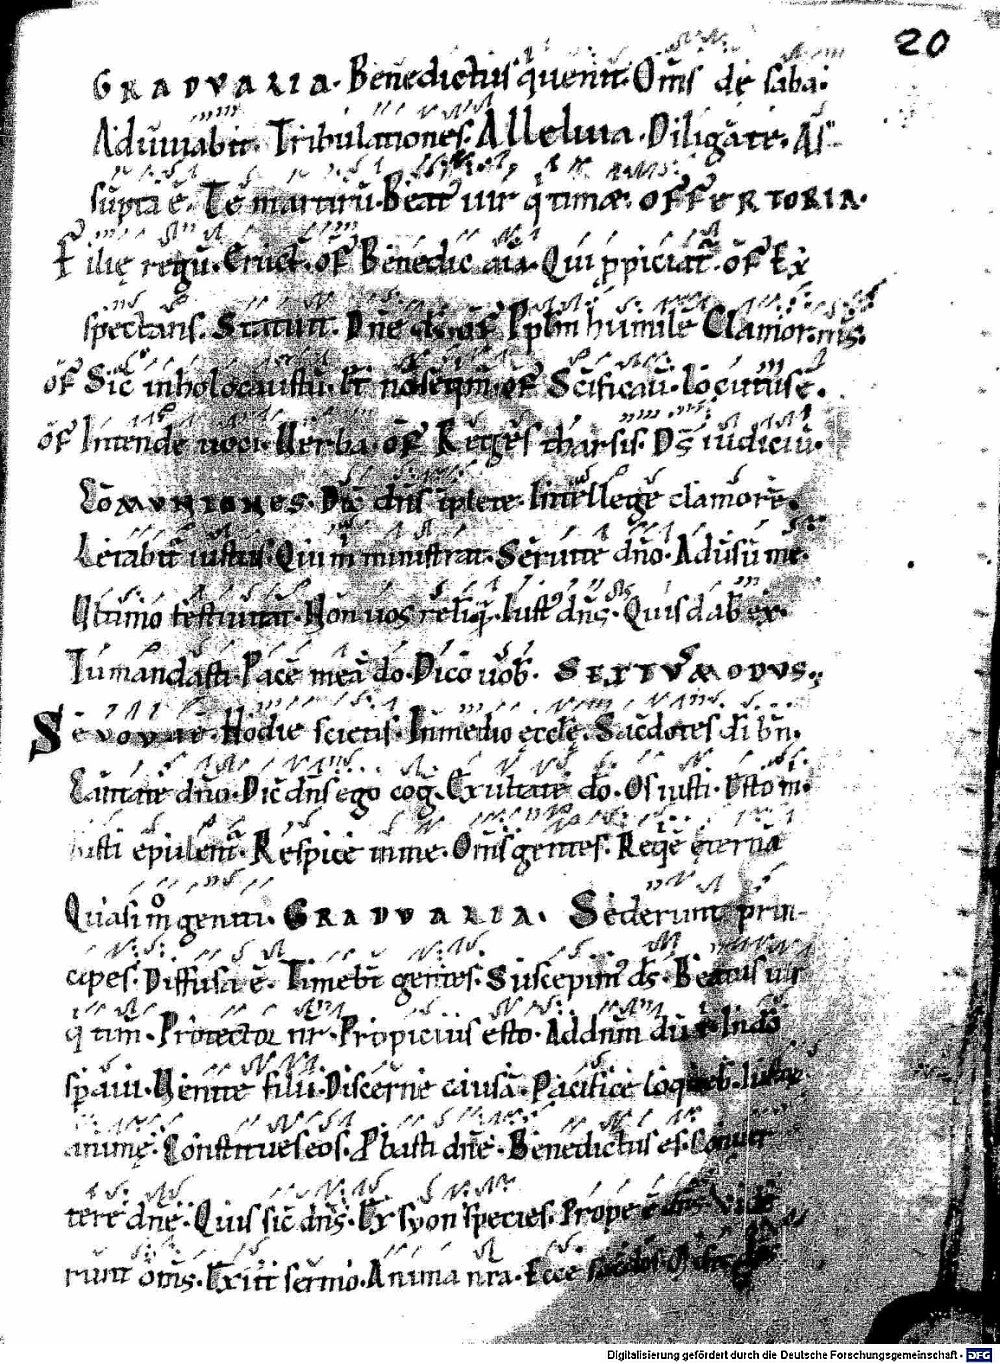 20
GRADVARIA. Benedictus q̇uenit. Om̄s de saba.
Adiuuabit. Tribulationes. Alleluia. Diligate. As-
sūpta ē. Te martirū. Beat' uir q̇ timæ. OFFERTORIA.
Filię regū. Eruct̄. of̄ Benedic aīa. Qui ppiciat̄. of̄ Ex
spectans. Statuit. Dn̄e ds̄. of̄ Pplm humilē Clamor. mīs.
of̄ Sic in holocaustū. Et of̄ Sc̄ificauī. Locutus ē.
of̄ Intende uoci. Uerba. of̄ Reges tharsis. Ds̄ iudiciū.
COMVNIONES. dn̄s īplete. Intellege clamorē.
Letabit̄ iustus. Qui m̄ ministrat. Seruite dn̄o. Aduersū me.
Ultimo festiuitat̄. Non uos relīq̄. Iust' dn̄s. Quis dab̄ ex.
Tu mandasti. Pacē meā do. Dico uob̄. SEXTVS MODVS.
Seuouae. Hodie scietis. In medio ęcclę. Sac̄dotes dī bn̄.
Cantate dn̄o. Dic̄ dn̄s ego cog. Exultate dō. Os iusti. Esto m̄.
iusti epulent̄. Respice in me. Om̄s gentes. Reqē ęternā
Quasi m̊ geniti. GRADVARIA. Sederunt prin-
cipes. Diffusa ē. Timebt̄ gentes. Suscepim' ds̄. Beatus uir
q̇ tim̄. Protector nr̄. Propicius esto. Ad dn̄m dū t̄. In dō
spauit. Uenite filii. Discerne causā. Pacifice loqueb̄.
animę. Constitues eos. Pbasti dn̄e. Benedictus es. Conuer
tere dn̄e. Quis sic̄ dn̄s. Ex syon species. Prope ē dn̄s. Vide
runt om̄s. Exiit sermo. Anima nr̄a. Ecce sac̄dos.
Digitalisierung gefördert durch die Deutsche Forschungsgemeinschaft - DFG